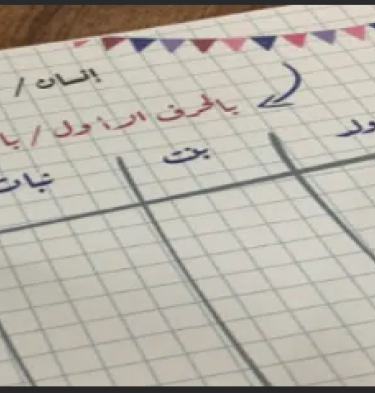 إنسان /
بالحرف الأول / با
ولد بنت نبات